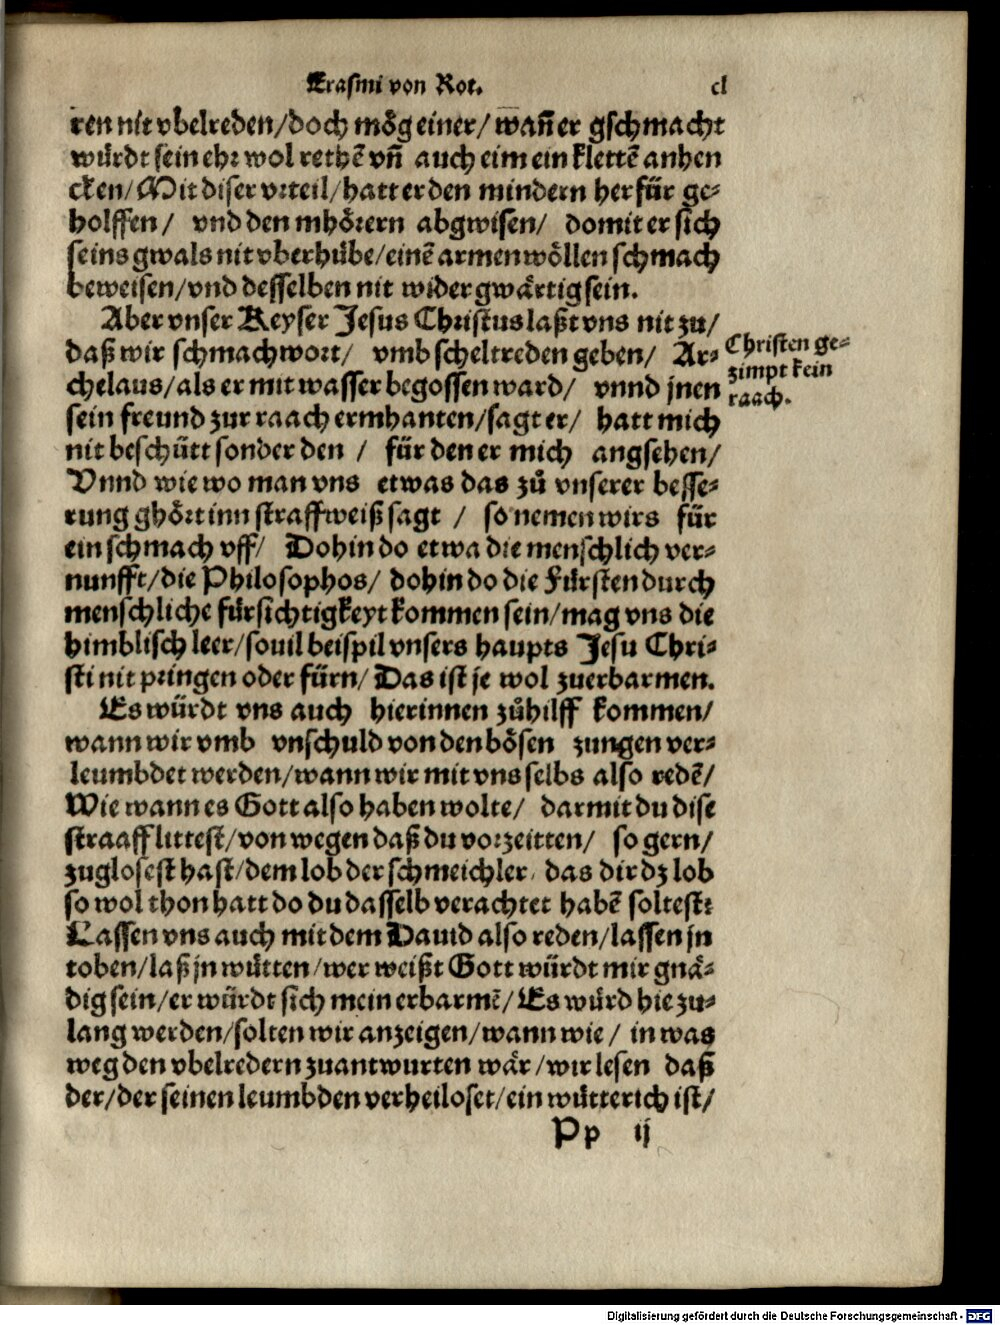 Erasmi von Rot. cl
ren nit vbelreden/doch mög einer/wañ er gschmacht
würdt sein ehr wol rethẽ vñ auch eim ein klettẽ anhen
cken/Mit diser vrteil/hatt er den mindern herfür ge-
holffen/ vnd den mhörern abgwisen/ domit er sich
seins gwals nit vberhübe/einẽ armen wöllen schmach
beweisen/vnd desselben nit widergwärtig sein.
Aber vnser Keyser Jesus Christus laßt vns nit zu/
daß wir schmachwort/ vmb scheltreden geben/ Ar-
chelaus/als er mit wasser begossen ward/ vnnd jnen
sein freund zur raach ermhanten/sagt er/ hatt mich
nit beschütt sonder den / für den er mich angsehen/
Vnnd wie wo man vns etwas das zů vnserer besse-
rung ghört inn straffweiß sagt / so nemen wirs für
ein schmach vff/ Dohin do etwa die menschlich ver-
nunfft/die Philosophos/ dohin do die Fürsten durch
menschliche fürsichtigkeyt kommen sein/mag vns die
himblisch leer/souil beispil vnsers haupts Jesu Chri-
sti nit pringen oder fürn/Das ist je wol zuerbarmen.
Es würdt vns auch hierinnen zůhilff kommen/
wann wir vmb vnschuld von den bösen zungen ver-
leumbdet werden/wann wir mit vns selbs also redẽ/
Wie wann es Gott also haben wolte/ darmit du dise
straaff littest/von wegen daß du vorzeitten/ so gern/
zuglosest hast/dem lob der schmeichler/ das dir dz lob
so wol thon hatt do du dasselb verachtet habẽ soltest:
Lassen vns auch mit dem Dauid also reden/lassen jn
toben/laß jn wütten/wer weißt Gott würdt mir gnä-
dig sein/er würdt sich mein erbarmẽ/Es würd hie zu-
lang werden/solten wir anzeigen/wann wie/ in was
weg den vbelredern zuantwurten wär/wir lesen daß
der/der seinen leumbden verheiloset/ein wütterich ist/
Pp ij
Christen ge-
zimpt kein
raach.
Digitalisierung gefördert durch die Deutsche Forschungsgemeinschaft - DFG